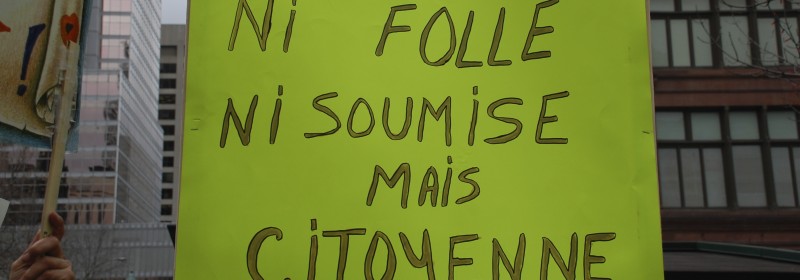 Ni FOLLE
Ni SOUMiSE
MAiS
CiTOYENNE